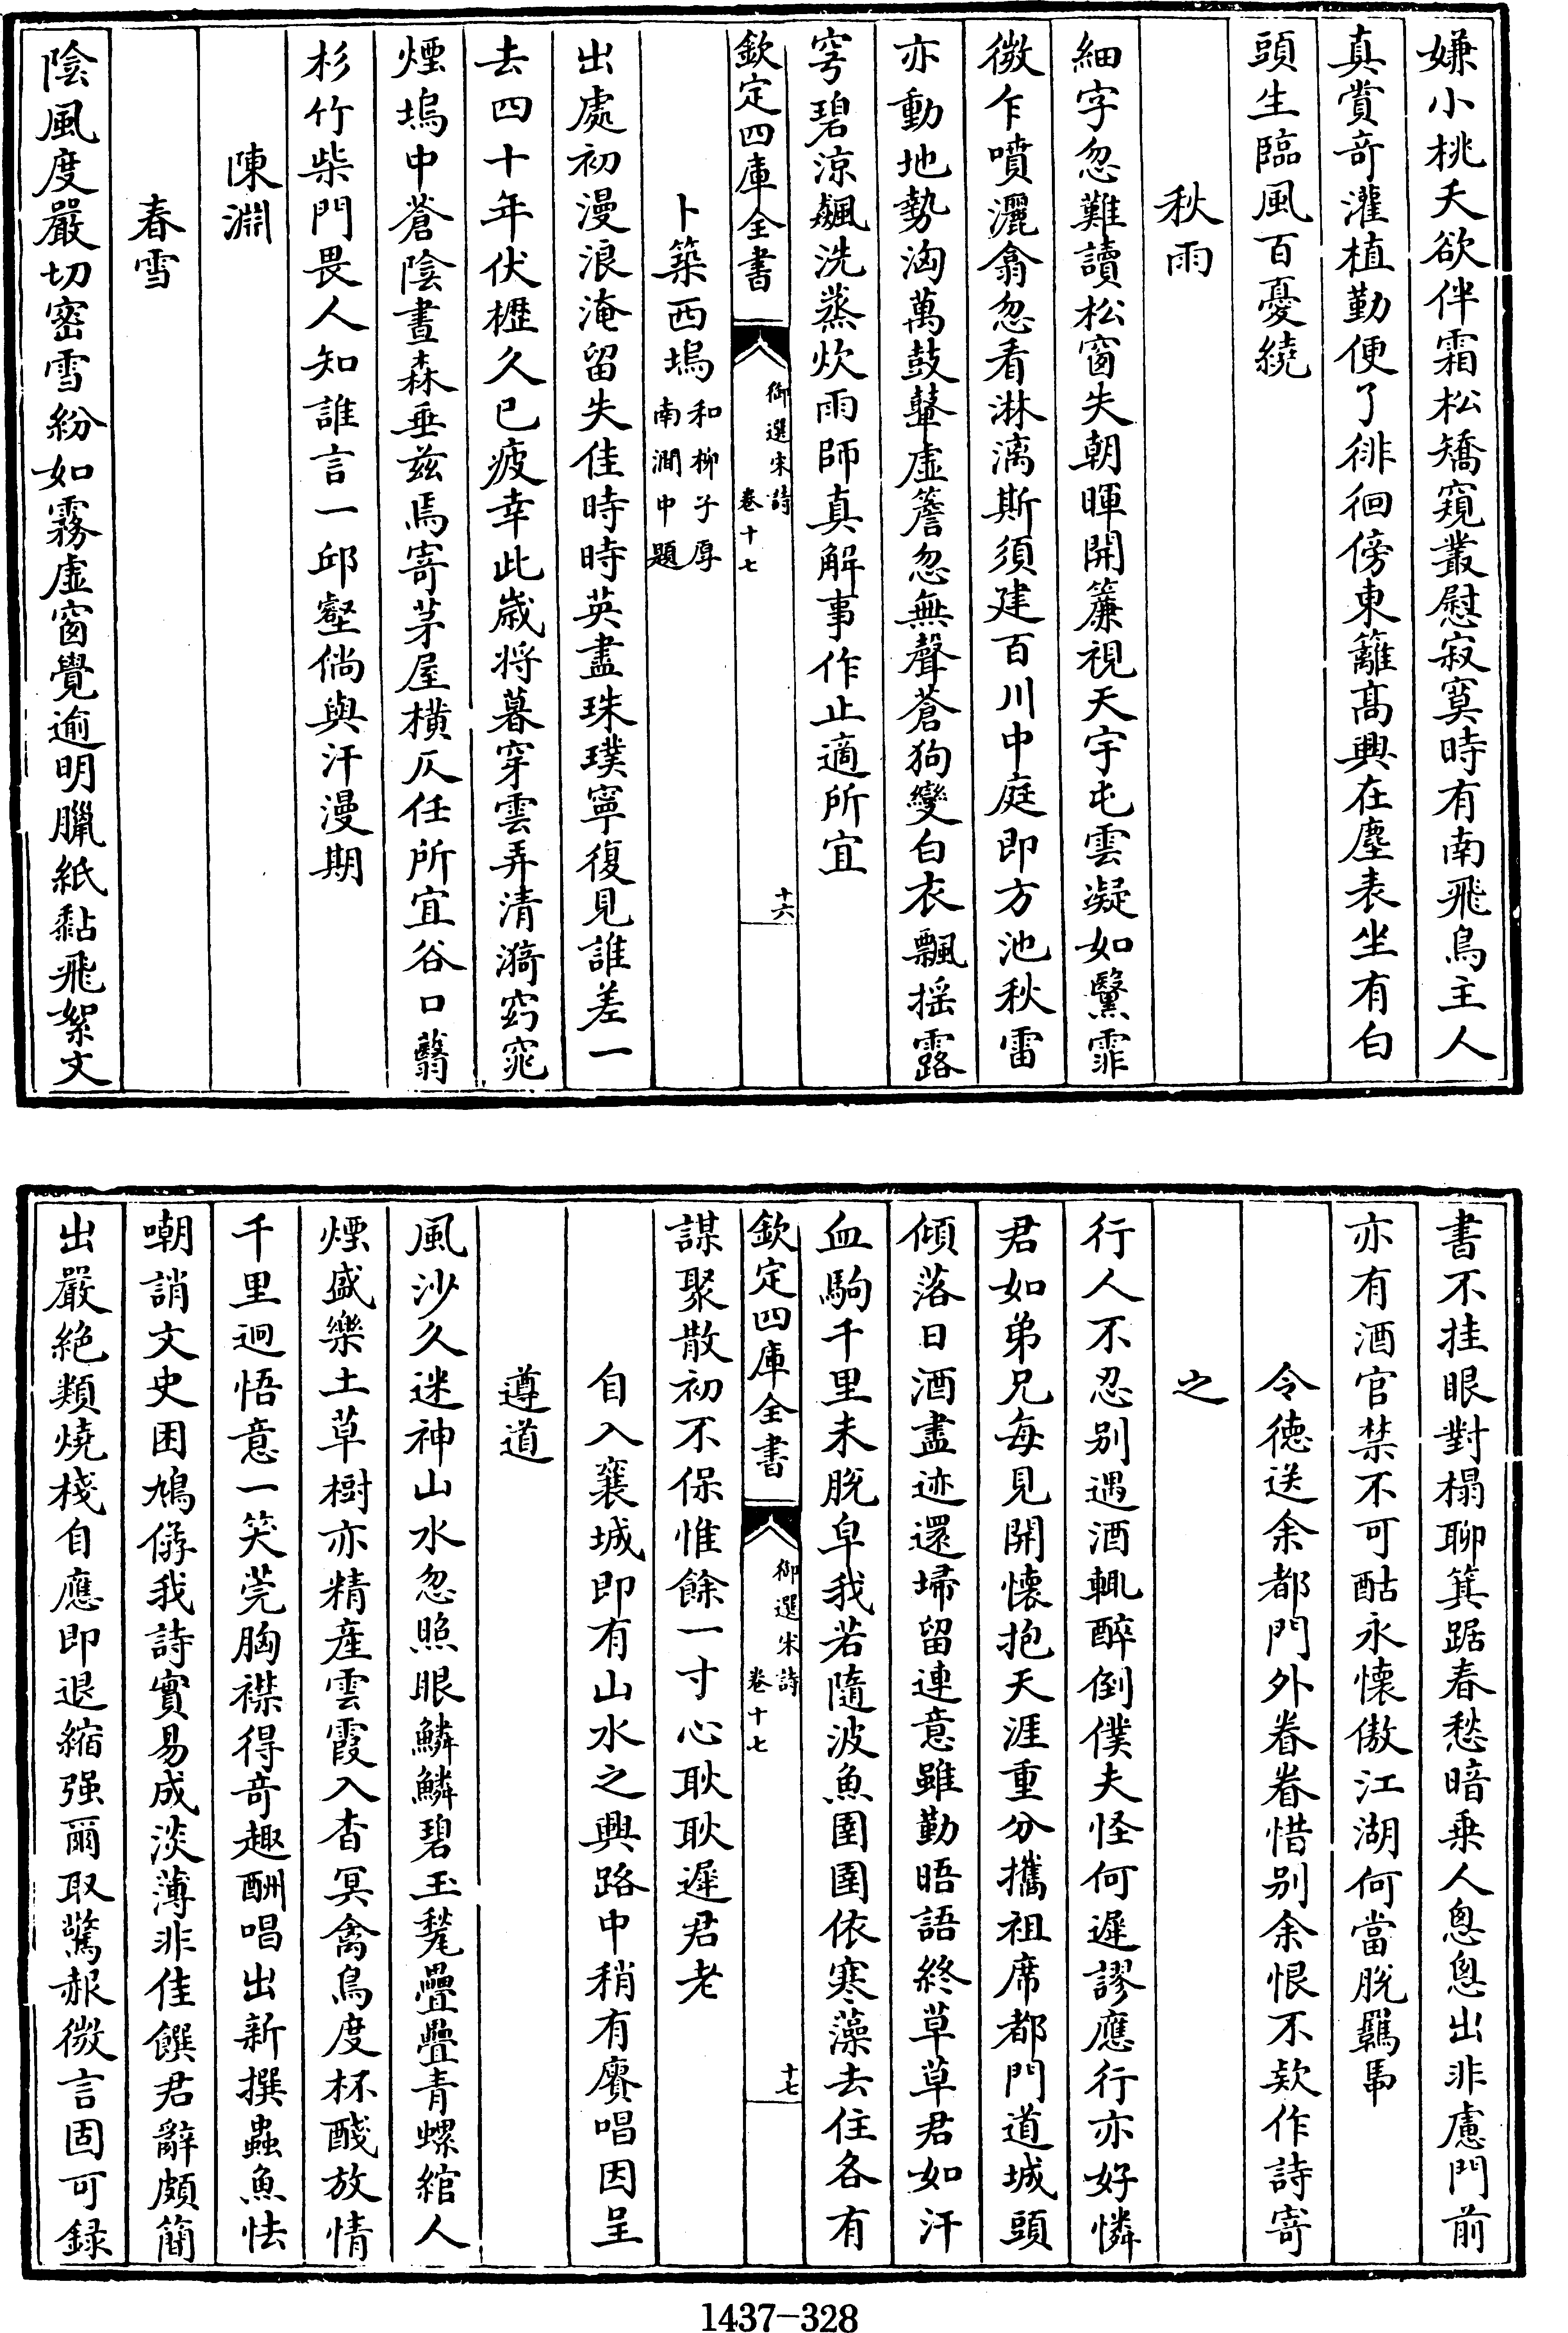 嫌小桃夭欲伴霜松矯窺叢慰寂寞時有南飛鳥主人
真賞奇灌植勤便了徘徊傍東籬高興在塵表坐有白
頭生臨風百憂繞
秋雨
細字忽難讀松窗失朝暉開簾視天宇屯雲凝如黳霏
微乍噴灑翕忽看淋漓斯須建百川中庭即方池秋雷
亦動地勢洶萬鼓鼙虛簷忽無聲蒼狗變白衣飄摇露
穹碧涼飆洗蒸炊雨師真解事作止適所宜
欽定四庫全書
御選宋詩
卷十七
十六
卜築西塢
和柳子厚
南澗中題
出處初漫浪淹留失佳時時英盡珠璞寧復見誰差一
去四十年伏櫪久已疲幸此歲将暮穿雲弄清漪窈窕
煙塢中蒼陰晝森垂兹焉寄茅屋橫仄任所宜谷口翳
杉竹柴門畏人知誰言一邱壑倘與汗漫期
陳淵
春雪
陰風度嚴切密雪紛如霧虛窗覺逾明臘紙黏飛絮文
書不挂眼對榻聊箕踞春愁暗乗人悤悤出非慮門前
亦有酒官禁不可酤永懷傲江湖何當脱羈馽
令德送余都門外眷眷惜别余恨不欵作詩寄
之
行人不忍别遇酒輒醉倒僕夫怪何遲謬應行亦好憐
君如弟兄每見開懷抱天涯重分攜祖席都門道城頭
傾落日酒盡迹還埽留連意雖勤晤語終草草君如汗
血駒千里未脱皁我若隨波魚圉圉依寒藻去住各有
欽定四庫全書
御選宋詩
卷十七
十七
謀聚散初不保惟餘一寸心耿耿遲君老
自入襄城即有山水之興路中稍有賡唱因呈
遵道
風沙久迷神山水忽照眼鱗鱗碧玉甃疊疊青螺綰人
煙盛樂土草樹亦精産雲霞入杳冥禽鳥度杯醆放情
千里迥悟意一笑莞胸襟得奇趣酬唱出新撰蟲魚怯
嘲誚文史困鳩僝我詩實易成淡薄非佳饌君辭頗簡
出嚴絶類燒棧自應即退縮强爾取驚赧微言固可録
1437-328